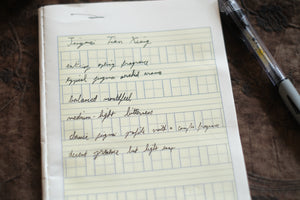 Jingmai Tian Xiang
enticing opting fragrance
typical jingmai orchid aroma
balanced mouthfeel
medium-light bitterness
classic jingmai profile with complex fragrance
decent presence but light